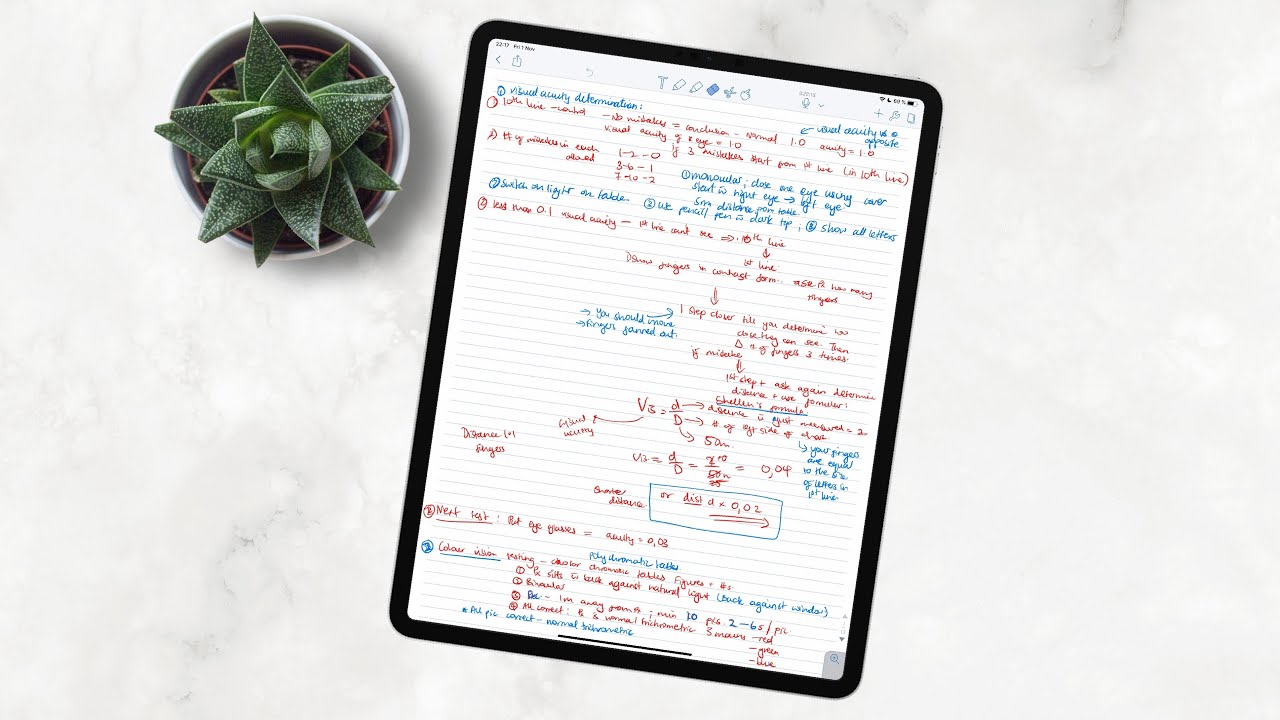 22:17 Fri 1 Nov
69 %
① Visual acuity determination:
① 10th line – control – No mistakes = conclusion – normal 1.0 acuity = 1.0
visual acuity of R eye = 1.0
← visual acuity is
opposite
if 3 mistakes start from 1st line (in 10th line)
# of mistakes in each
allowed
1–2 – 0
3–6 – 1
7–10 – 2
① monocular; close one eye using cover
start right eye → left eye
② Switch on light on table.
5m distance from table
③ use pencil/pen dark top; ④ show all letters
② less than 0.1 visual acuity – 1st line can't see ⇒ 10th line
↓
1st line
Show fingers in contrast form. ask Pt how many
fingers
⇓
→ You should move
→ Fingers fanned out.
1 step closer till you determine
close they can see. Then
# of fingers 3 times.
if mistake
⇓
1st step + ask again determine
distance + use formular:
Snellen's formula.
Vis = d/D → distance just measured = 2
→ # of left side of
↳ 50m.
visual
acuity
Distance
fingers
↳ your fingers
are equal
to the size
of letters in
1st line
Vis = d/D = = 0,04
Shorter
distance
or dist d × 0,02
③ Next test: Put eye glasses = acuity = 0,03
polychromatic tables.
② Colour vision testing – chromatic tables figures + #s.
① Pt sits back against natural light (back against window)
② Binocular
③ 1m away from ; min 10 pics 2–6s / pic
④ All correct: Pt normal trichrometric 3 –red
–green
–blue
* All pic correct – normal trichrometric